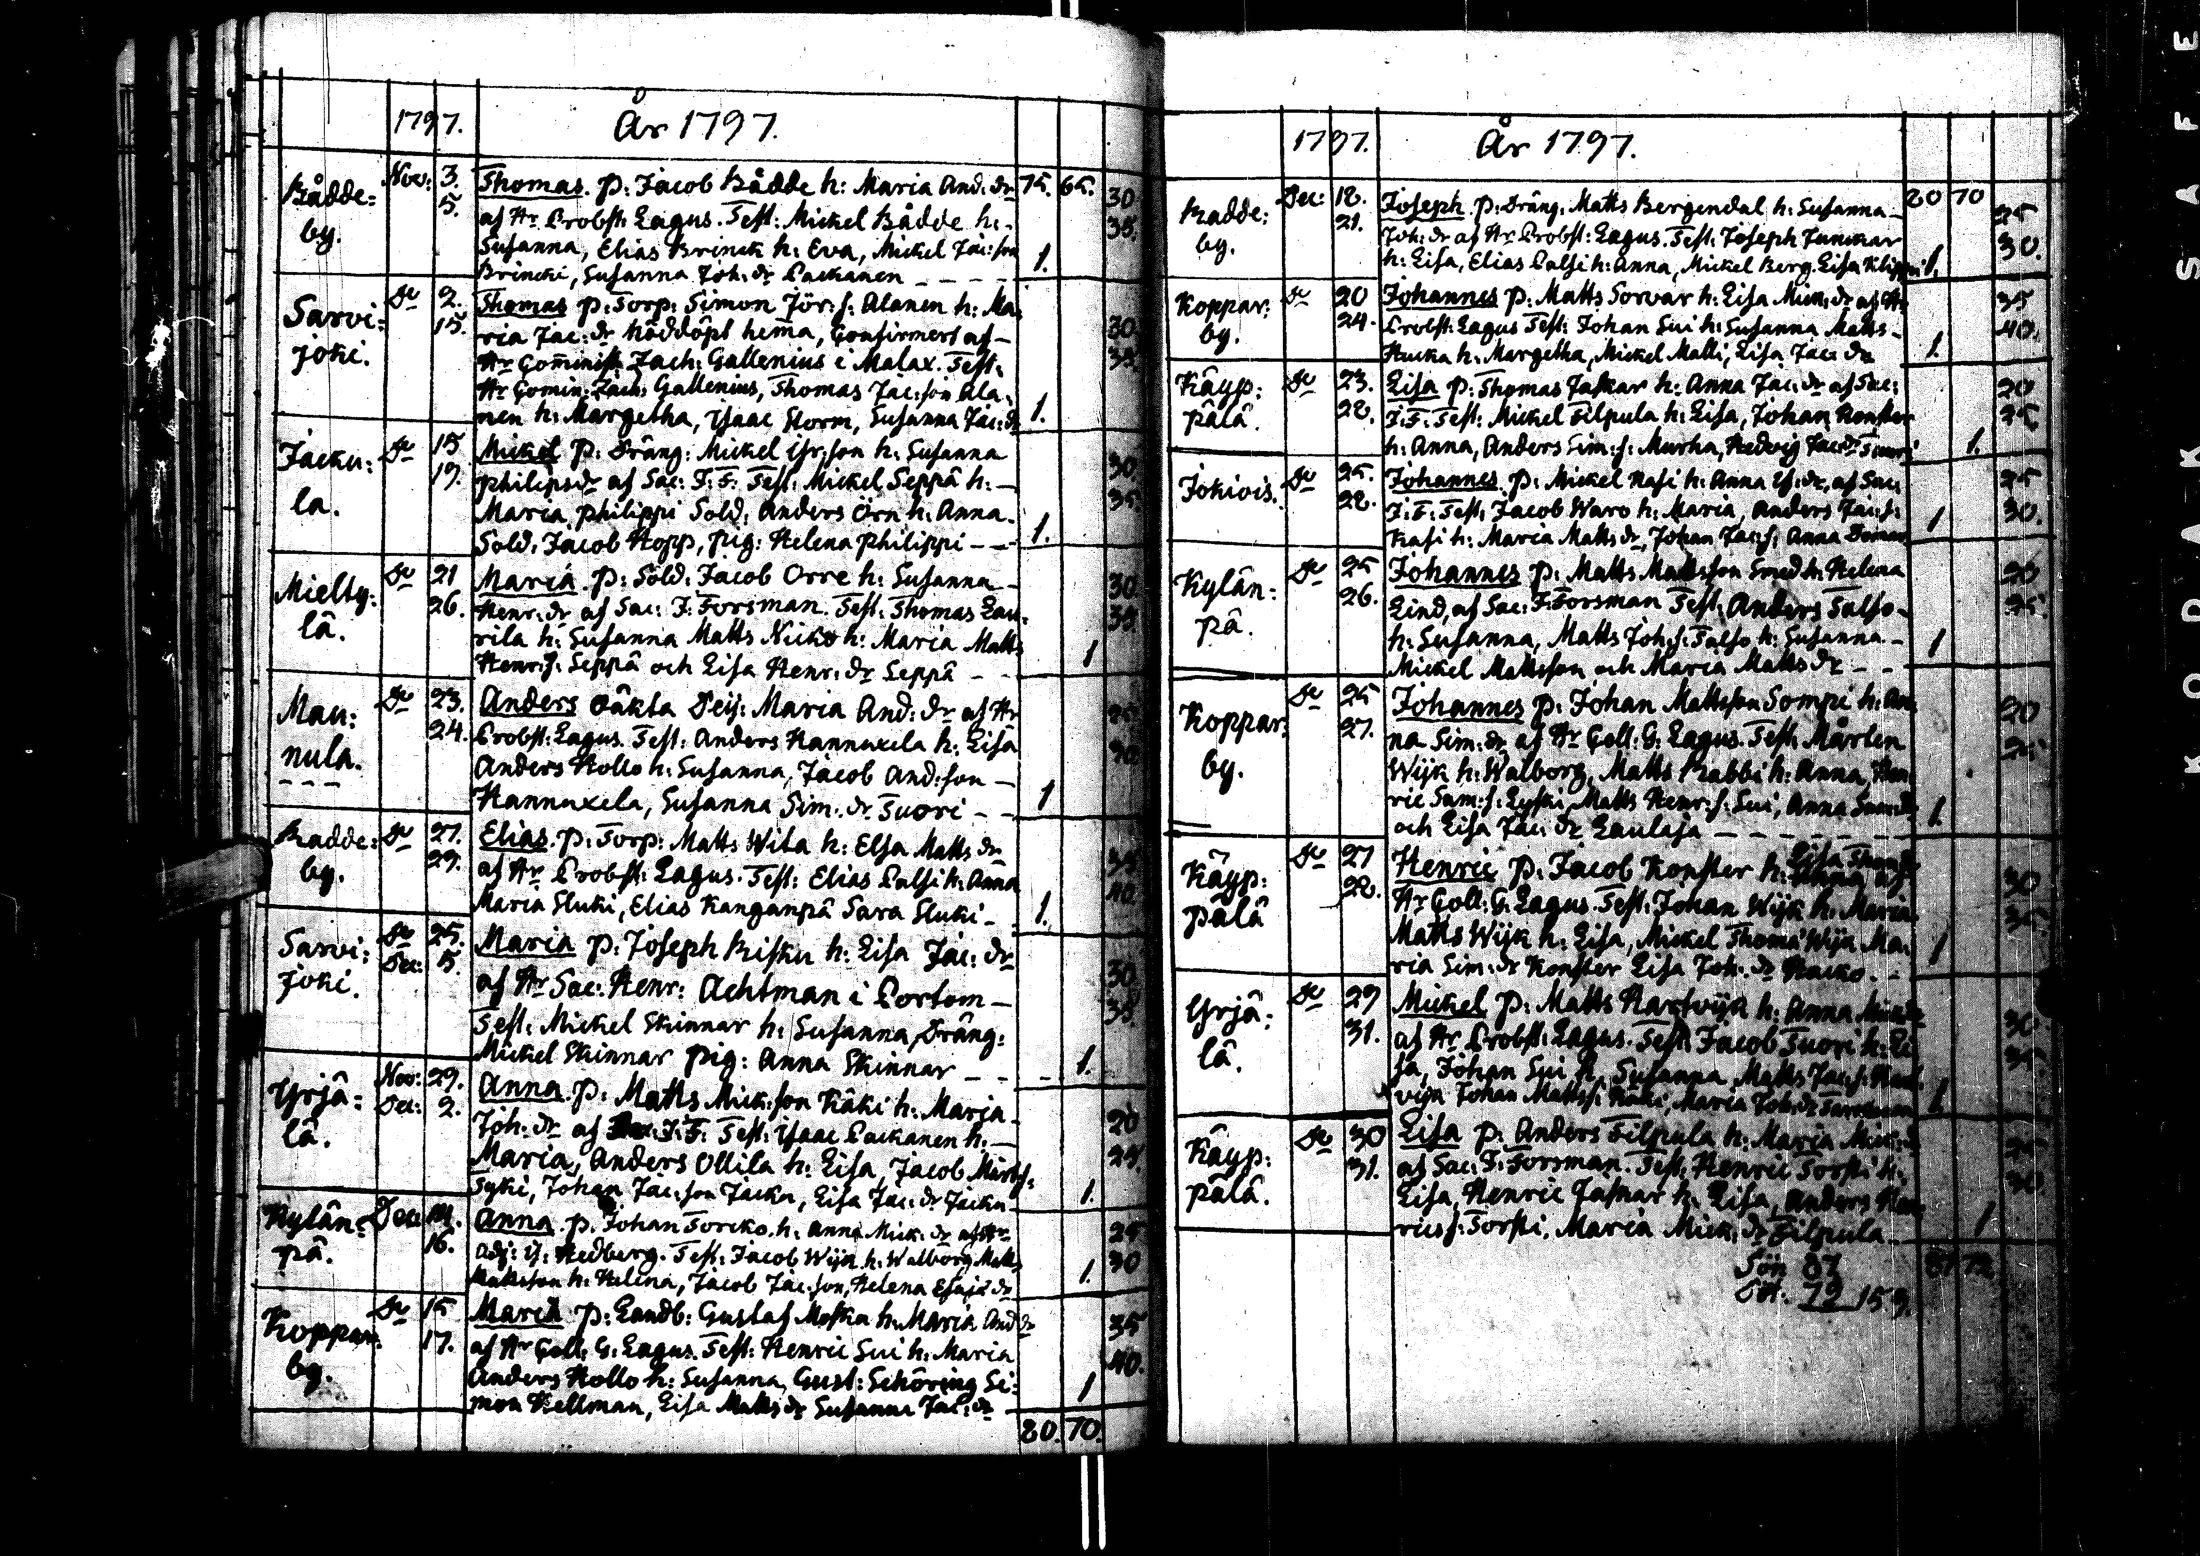 1797. År 1797.
Rådde: Nov: 3. Thomas. p: Jacob Rådde h: Maria And: dr 75. 65. 30
by. 5. af Hr Probst: Lagus. Test: Mickel Rådde h: 35.
Susanna, Elias Brinck h: Eva, Mickel Jac: son
Brincki, Susanna Joh: dr Packanen 1.
Sarvi: Do 2. Thomas p: Torp: Simon Jör: s: Alanen h: Ma:
joki. 15. ria Jac: dr Nöddöpt hema, Confirmert af 30
Hr Commist: Zach: Gallenius i Malax. Test: 35.
Hr Comin: Zach: Gallenius, Thomas Jac: son Ala:
nen h: Margetha, Ysaac Storm, Susanna Jac: dr 1.
Jacku: Do 15 Mickel p: Dräng: Mickel Yr: son h: Susanna 30.
la. 19. philips dr af Sac: J: F: Test: Mickel Seppä h: 35.
Maria, philippi Sold: Anders Örn h: Anna.
Sold: Jacob Hopp, pig: Helena philippi 1.
Mielty: Do 21 Maria p: Sold: Jacob Orre h: Susanna 30.
lä. 26. Henr: dr af Sac: J: Forsman. Test: Thomas Lau: 35.
rila h: Susanna Matts Nicko h: Maria Matts
Henr: s: Seppä och Lisa Henr: dr Seppä 1
Man: Do 23. Anders oäkta Peij: Maria And: dr af Hr
nula. 24. Probst: Lagus. Test: Anders Hannuxela h: Lisa
Anders Hollo h: Susanna, Jacob And: son
Hannuxela, Susanna Sim: dr Tuori 1
Radde: Do 27. Elias. p: Torp: Matts Wita h: Elsa Matts dr 35
by. 29. af Hr Probst: Lagus. Test: Elias Palsi h: Anna 40.
Maria Sluki, Elias Kanganpä Sara Sluki 1.
Sarvi: Do 25. Maria p: Joseph Risku h: Lisa Jac: dr
joki. Dec: 5. af Hr Sac: Henr: Achtman i Portom 30.
Test: Mickel Skinnar h: Susanna, Dräng: 35.
Mickel Skinnar pig: Anna Skinnar 1.
Yrjä: Nov: 29. Anna. p: Matts Mick: son Käki h: Maria
lä. Dec: 2. Joh: dr af J: F: Test: Ysaac Packanen h: 20
Maria, Anders Ollila h: Lisa, Jacob Märt: s: 25.
Tyki, Johan Jac: son Jacku, Lisa Jac: dr Jacku 1.
Kylän: Dec: 14. Anna. p: Johan Torcko. h: Anna Mick: dr af Hr 25
pä. 16. Adj: Y: Hedberg. Test: Jacob Wijk h: Walborg Matts 30
Mattsson h: Helena, Jacob Jac: son, Helena dr 1.
Koppar: Do 15 Maria p: Landb: Gustaf Moska h: Maria And: dr 35
by. 17. af Hr Coll: G: Lagus. Test: Henric Sui h: Maria 40.
Anders Hollo h: Susanna, Gust: Schöring Si:
mon Hellman, Lisa Matts dr Susanna Jac: dr 1
80. 70.
1797. År 1797.
Radde: Dec: 18. Joseph. p: Dräng: Matts Bergendal h: Susanna 80 70
by. 21. Joh: dr af Hr Probst: Lagus. Test: Joseph Junckar 25
h: Lisa, Elias Palsi h: Anna, Mickel Berg. Lisa 1. 30.
Koppar: Do 20 Johannes p: Matts Sorvar h: Lisa Mick: dr af Hr 35
by. 24. Probst: Lagus Test: Johan Sui h: Susanna Matts 40.
Hucka h: Margetha, Mickel Matti, Lisa Jac: dr 1.
Käyp: Do 23. Lisa p: Thomas Jaskar h: Anna Jac: dr af Sac: 20
pälä. 28. J: F: Test: Mickel Filpula h: Lisa, Johan Konster 25
h: Anna, Anders Sim: s: Murha, Hedvig Jac: dr 1.
Jokiois. Do 25. Johannes. p: Mickel Kasi h: Anna Ys: dr, af Sac: 25
28. J: F: Test: Jacob Waro h: Maria, Anders Jac: s: 30.
Kasi h: Maria Matts dr, Johan Jac: s: Anna 1
Kylän: Do 25 Johannes p: Matts Mattsson Smed h: Helena 20
pä. 26. Lind, af Sac: J: Forsman Test: Anders Talso 25.
h: Susanna, Matts Joh: s: Talso h: Susanna
Mickel Mattsson och Maria Matts dr 1
Koppar: Do 25 Johannes p: Johan Mattsson Sompi h: An: 20
by. 27. na Sim: dr af Hr Coll: G: Lagus. Test: Mårten 25.
Wijk h: Walborg, Matts Rabbi h: Anna, Hen:
ric Sam: s: Lyski, Matts Henr: s: Sui, Anna Sam: dr
och Lisa Jac: dr Laulaja 1.
Käyp: Do 27 Henric p: Jacob Konster h: Lisa Thom: dr 30
pälä 28. Hr Coll: G: Lagus. Test: Johan Wijk h: Maria 35
Matts Wijk h: Lisa, Mickel Thoma Wijk Ma:
ria Sim: dr Konster Lisa Joh: dr Hacko. 1
Yrjä: Do 29 Mickel p: Matts Hartvijk h: Anna Mick: dr 30
lä. 31. af Hr Probst: Lagus. Test: Jacob Tuori h: Li: 35
sa, Johan Sui h: Susanna Matts Jac: s: Hart:
vijk Johan Matts s: Käki, Maria Joh: dr 1.
Käyp: Do 30 Lisa p: Anders Filpula h: Maria Mick: dr 25
pälä. 31. af Sac: J: Forsman. Test: Henric Torsti h: 30.
Lisa, Henric Jaskar h: Lisa, Anders Hen:
rics s: Torsti, Maria Mick: dr Filpula 1
Sön 87 87 72
Döt: 72 159.
KODAK SAFE